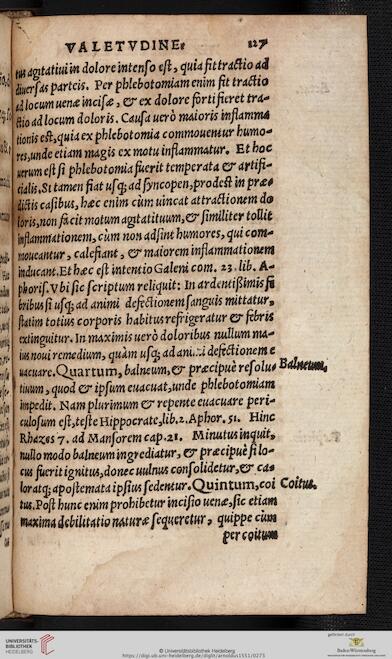 VALETVDINE. 127
tus agitatiui in dolore intenso est, quia fit tractio ad
diuersas parteis. Per phlebotomiam enim fit tractio
ad locum uenæ incisæ, & ex dolore forti fieret tra-
ctio ad locum doloris. Causa uerò maioris inflamma
tionis est, quia ex phlebotomia commouentur humo-
res, unde etiam magis ex motu inflammatur. Et hoc
uerum est si phlebotomia fuerit temperata & artifi-
cialis. Si tamen fiat usq; ad syncopen, prodest in præ-
dictis casibus, hæc enim cùm uincat attractionem do
loris, non facit motum agitatiuum, & similiter tollit
inflammationem, cùm non adsint humores, qui com-
moueantur, calefiant, & maiorem inflammationem
inducant. Et hæc est intentio Galeni com. 23. lib. A-
phoris. Vbi sic scriptum reliquit: In ardentißimis fe
bribus si usq; ad animi defectionem sanguis mittatur,
statim totius corporis habitus refrigeratur & febris
extinguitur. In maximis uerò doloribus nullum ma-
ius noui remedium, quàm usq; ad animi defectionem e
uacuare. Quartum, balneum, & præcipuè resolu- Balneum.
tiuum, quod & ipsum euacuat, unde phlebotomiam
impedit. Nam plurimum & repente euacuare peri-
culosum est, teste Hippocrate, lib. 2. Aphor. 51. Hinc
Rhazes 7. ad Mansorem cap. 21. Minutus inquit,
nullo modo balneum ingrediatur, & præcipuè si lo-
cus fuerit ignitus, donec uulnus consolidetur, & ca-
lor atq; apostemata ipsius sedentur. Quintum, coi Coitus.
tus. Post hunc enim prohibetur incisio uenæ, sic etiam
maxima debilitatio naturæ sequeretur, quippe cùm
per coitum
UNIVERSITÄTS-
BIBLIOTHEK
HEIDELBERG
https://digi.ub.uni-heidelberg.de/diglit/arnoldus1551/0273
© Universitätsbibliothek Heidelberg
gefördert durch
Baden-Württemberg